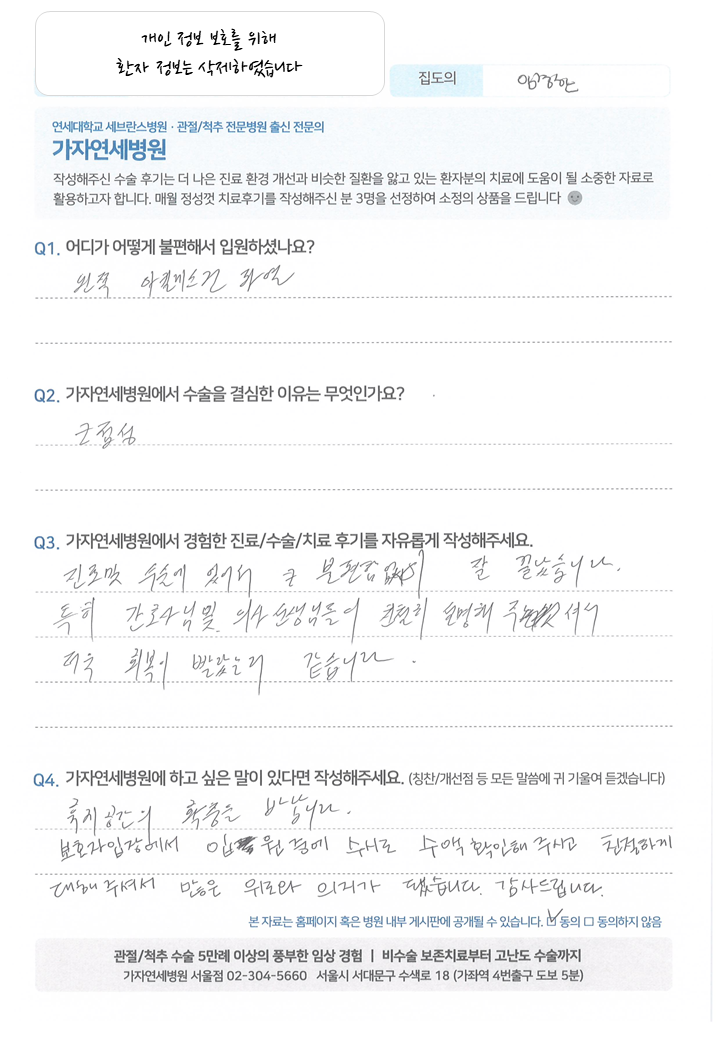 개인 정보 보호를 위해
환자 정보는 삭제하였습니다
집도의
연세대학교 세브란스병원 · 관절/척추 전문병원 출신 전문의
가자연세병원
작성해주신 수술 후기는 더 나은 진료 환경 개선과 비슷한 질환을 앓고 있는 환자분의 치료에 도움이 될 소중한 자료로
활용하고자 합니다. 매월 정성껏 치료후기를 작성해주신 분 3명을 선정하여 소정의 상품을 드립니다
Q1. 어디가 어떻게 불편해서 입원하셨나요?
왼쪽 아킬레스건 파열
Q2. 가자연세병원에서 수술을 결심한 이유는 무엇인가요?
근접성
Q3. 가자연세병원에서 경험한 진료/수술/치료 후기를 자유롭게 작성해주세요.
진료및 수술에 있어서 큰 불편함 없이 잘 끝났습니다.
특히 간호사님및 의사선생님들이 친절히 설명해 주셔서
더욱 회복이 빨랐는데 같습니다.
Q4. 가자연세병원에 하고 싶은 말이 있다면 작성해주세요. (칭찬/개선점 등 모든 말씀에 귀 기울여 듣겠습니다)
휴지공간의 확충을 바랍니다.
보호자입장에서 입원중에 수시로 수액 확인해 주시고 친절하게
대해주셔서 많은 위로와 의지가 됐습니다. 감사드립니다.
본 자료는 홈페이지 혹은 병원 내부 게시판에 공개될 수 있습니다. ☑ 동의 □ 동의하지 않음
관절/척추 수술 5만례 이상의 풍부한 임상 경험 | 비수술 보존치료부터 고난도 수술까지
가자연세병원 서울점 02-304-5660 서울시 서대문구 수색로 18 (가좌역 4번출구 도보 5분)